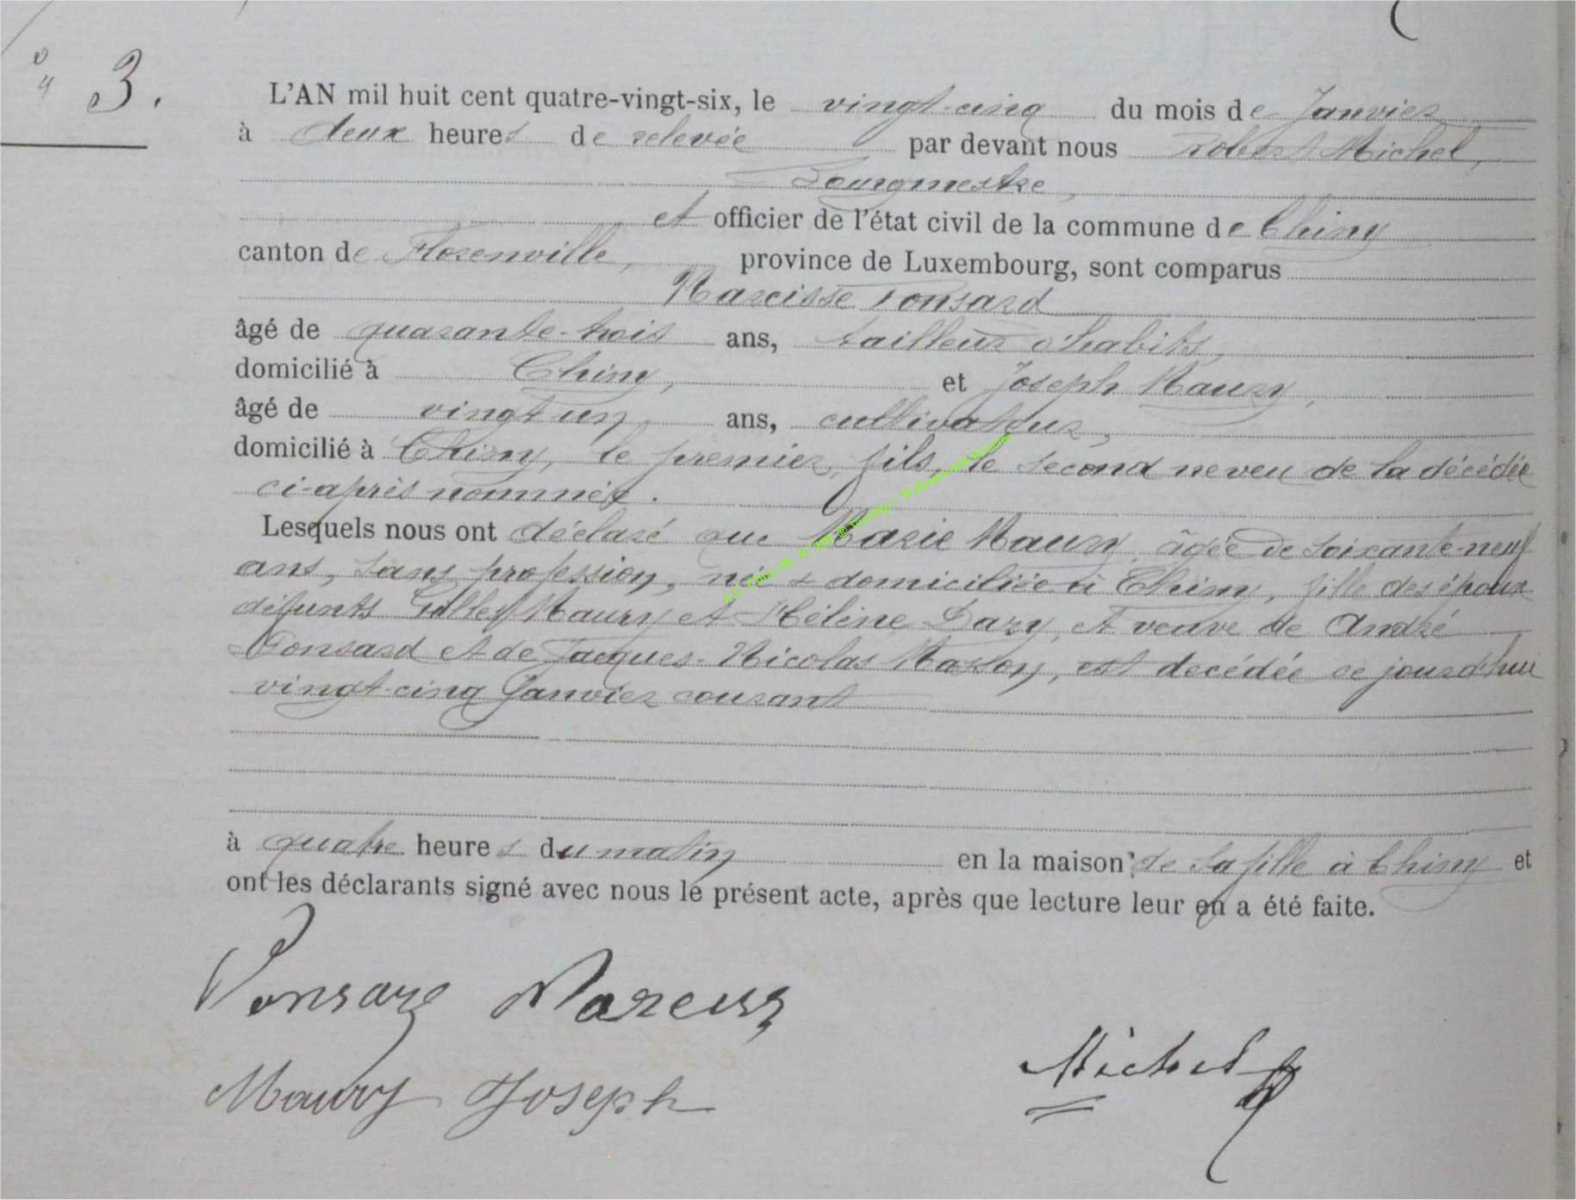 3.
L'AN mil huit cent quatre-vingt-six, le vingt-cinq du mois de Janvier
à deux heures de relevée par devant nous Robert Michel,
Bourgmestre,
et officier de l'état civil de la commune de Chiny
canton de Florenville, province de Luxembourg, sont comparus
Narcisse Ponsard
âgé de quarante-trois ans, tailleur d'habits,
domicilié à Chiny, et Joseph Maury,
âgé de vingt un ans, cultivateur,
domicilié à Chiny, le premier, fils, le second neveu de la décédée
ci-après nommée.
Lesquels nous ont déclaré que Marie Maury, âgée de soixante-neuf
ans, sans profession, née & domiciliée à Chiny, fille des époux
défunts Maury et Hélène Dazy, et veuve de André
Ponsard et de Jacques-Nicolas Masson, est decédée ce jourd'hui
vingt-cinq Janvier courant
à quatre heures du matin en la maison de sa fille à Chiny et
ont les déclarants signé avec nous le présent acte, après que lecture leur en a été faite.
Ponsard
Maury Joseph
Michel